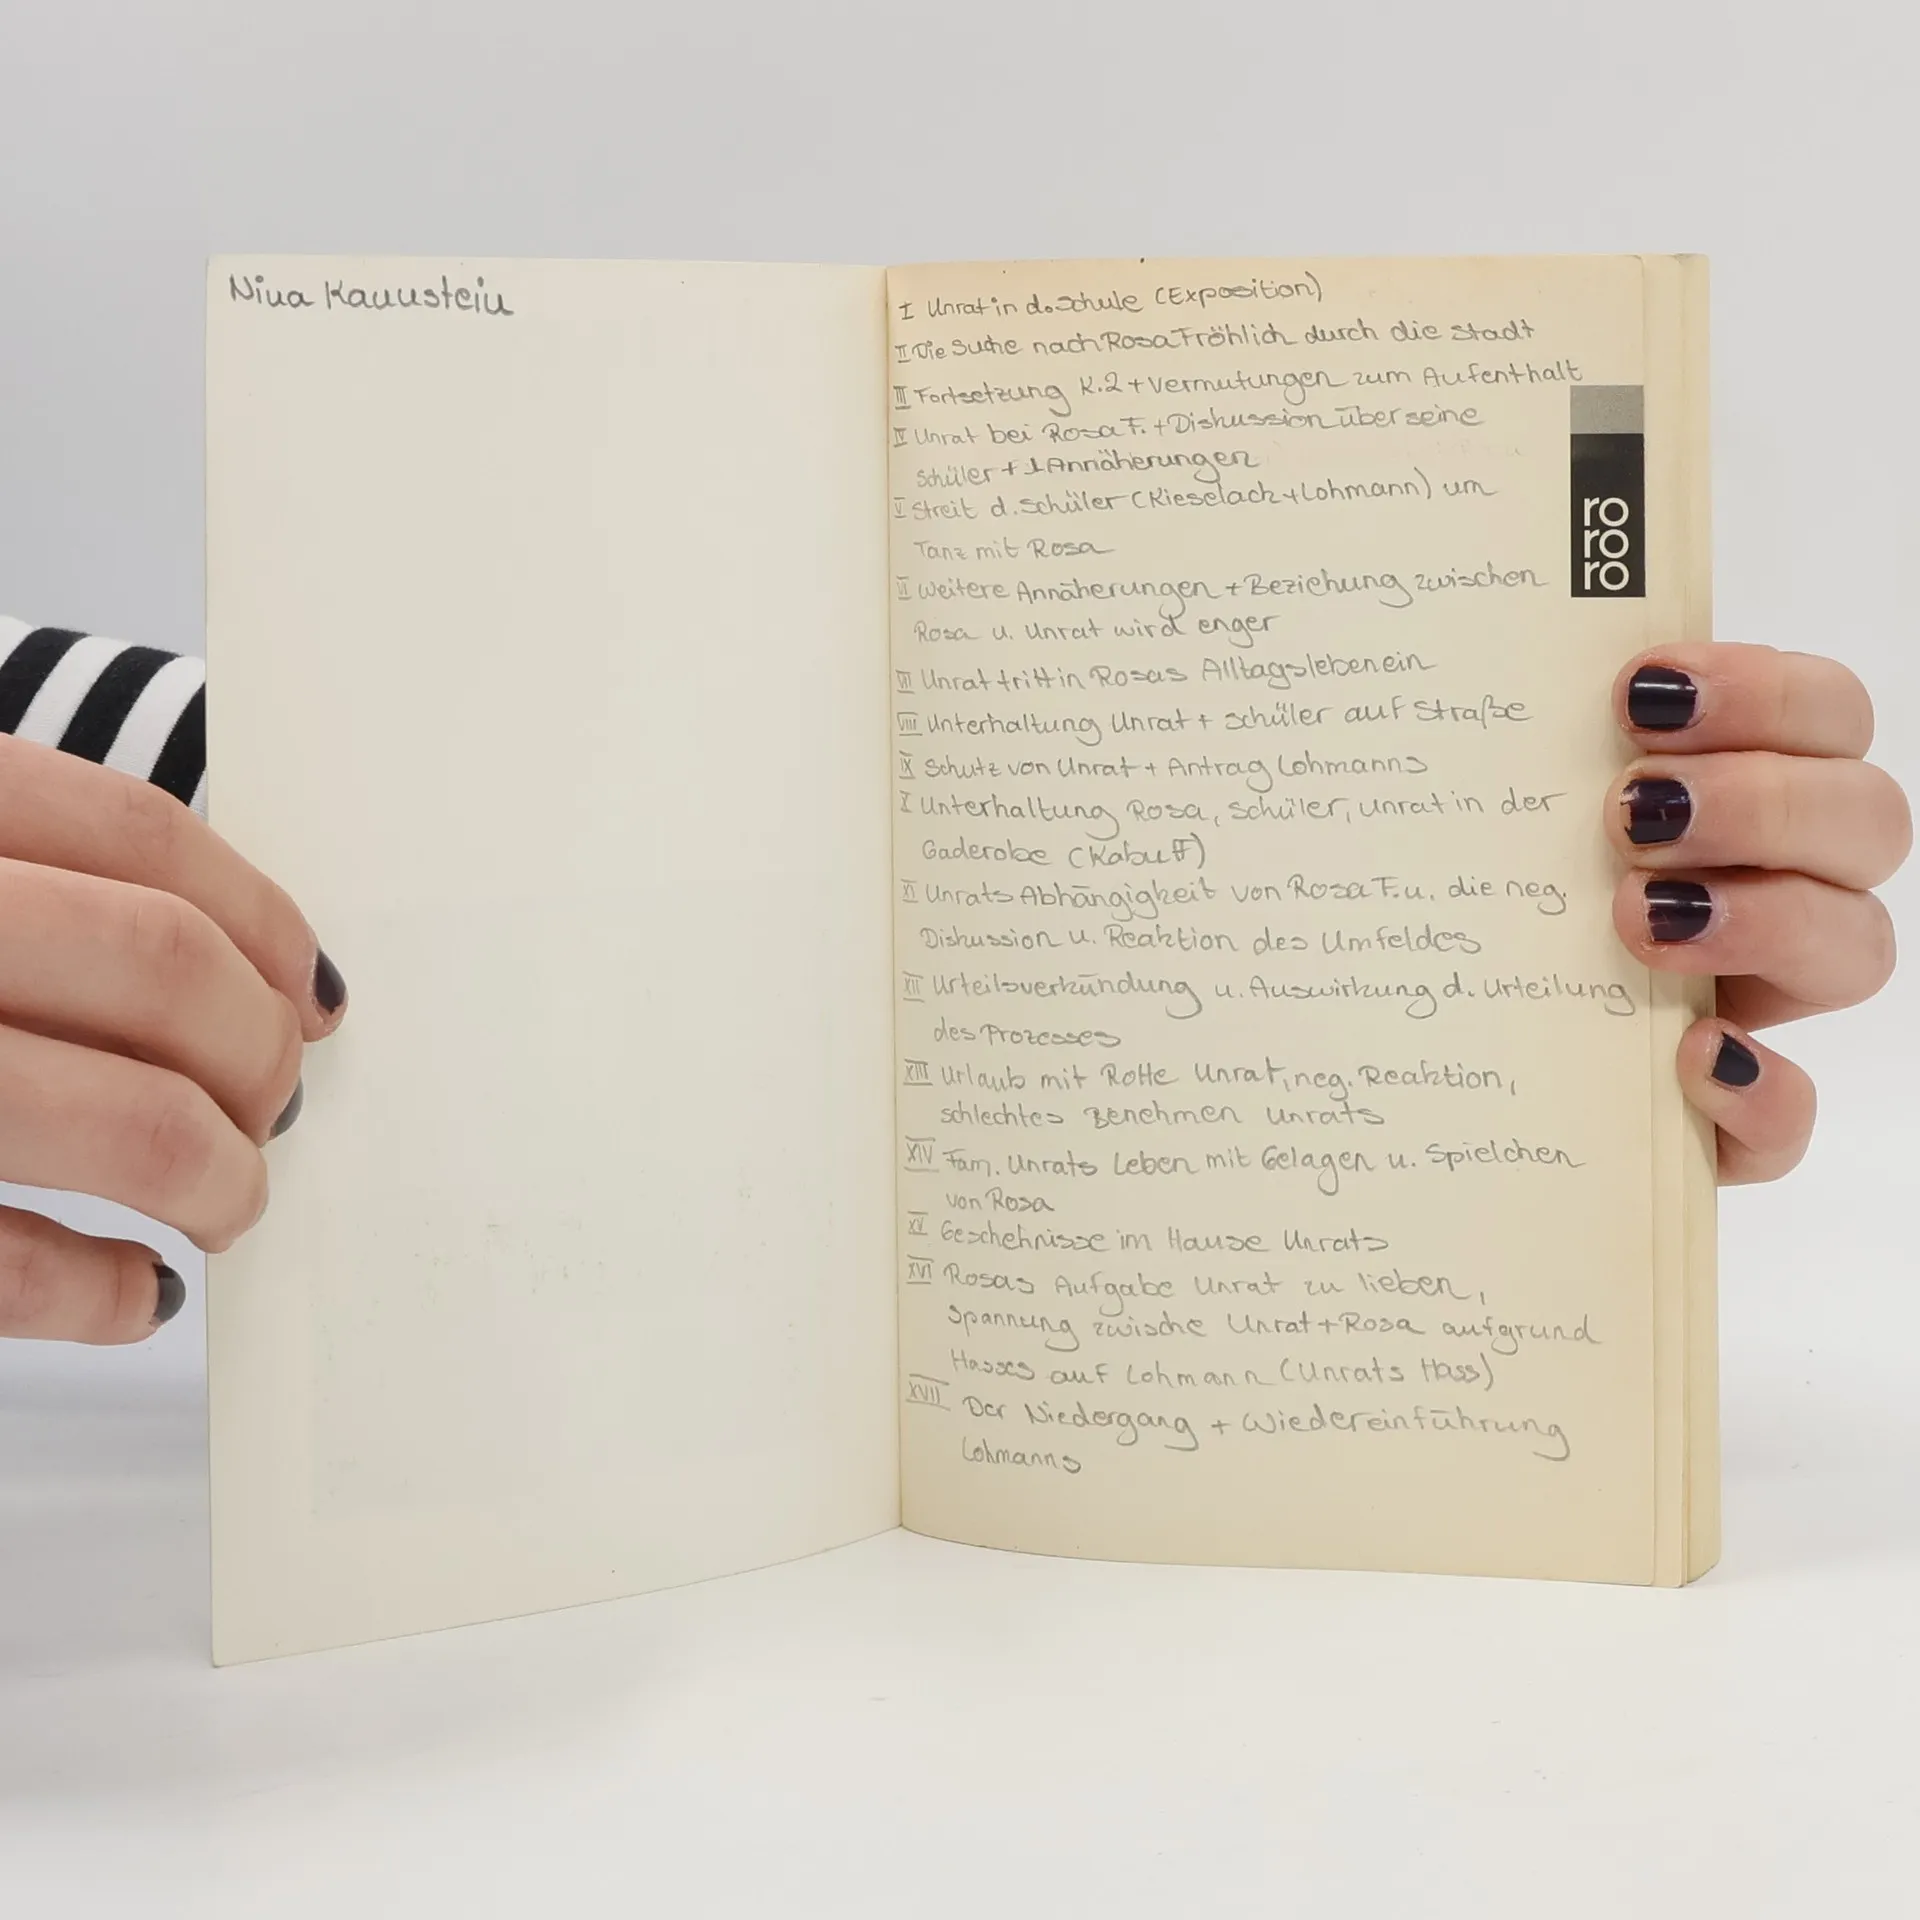 Nina Kannstein
I Unrat in d. Schule (Exposition)
II Die Suche nach Rosa Fröhlich durch die Stadt
III Fortsetzung K.2 + Vermutungen zum Aufenthalt
IV Unrat bei Rosa F. + Diskussion über seine
Schüler + 1 Annäherungen
V Streit d. Schüler (Kieselack + Lohmann) um
Tanz mit Rosa
VI Weitere Annäherungen + Beziehung zwischen
Rosa u. Unrat wird enger
VII Unrat tritt in Rosas Alltagsleben ein
VIII Unterhaltung Unrat + Schüler auf Straße
IX Schutz von Unrat + Antrag Lohmanns
X Unterhaltung Rosa, Schüler, Unrat in der
Gaderobe (Kabuff)
XI Unrats Abhängigkeit von Rosa F. u. die neg.
Diskussion u. Reaktion des Umfeldes
XII Urteilsverkündung u. Auswirkung d. Urteilung
des Prozesses
XIII Urlaub mit Rotte Unrat, neg. Reaktion,
schlechtes Benehmen Unrats
XIV Fam. Unrats Leben mit Gelagen u. Spielchen
von Rosa
XV Geschehnisse im Hause Unrats
XVI Rosas Aufgabe Unrat zu lieben,
Spannung zwische Unrat + Rosa aufgrund
Hasses auf Lohmann (Unrats Hass)
XVII Der Niedergang + Wiedereinführung
Lohmanns
ro
ro
ro